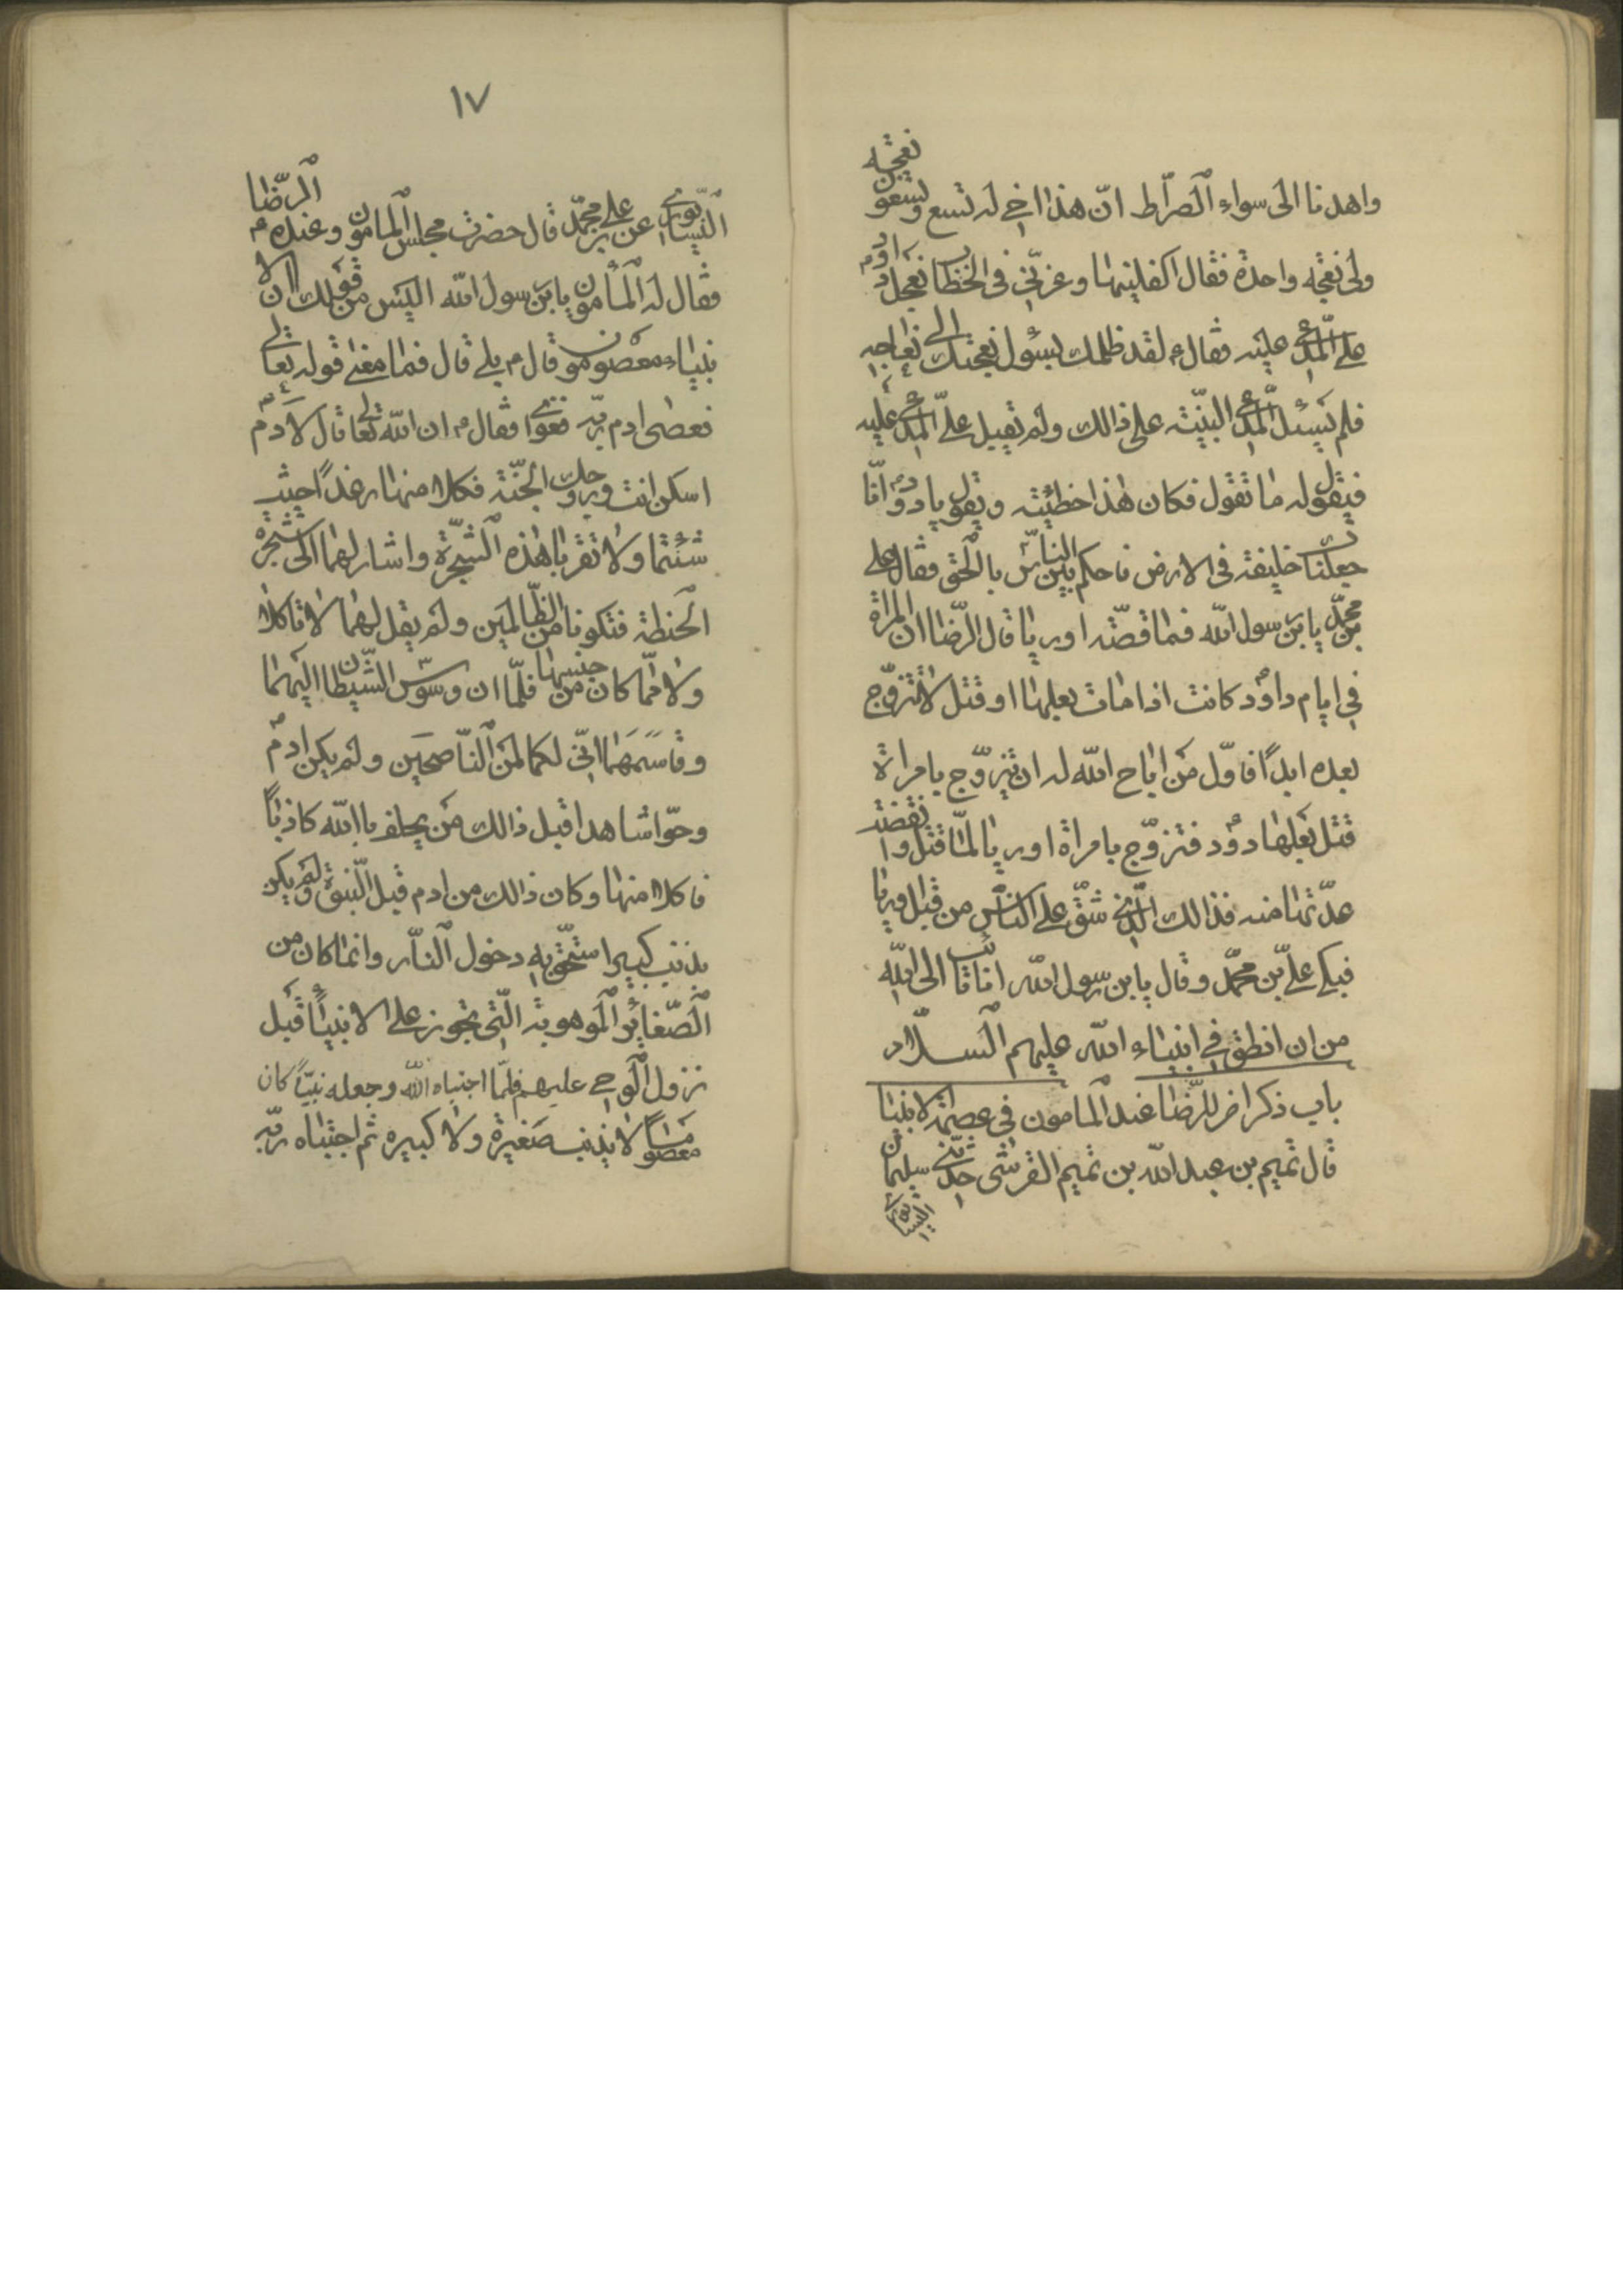 واهدنا الى سواء الصّراط انّ هذا اخى له تسع وتسعون نعجه
ولى نعجه واحدة فقال اكفلينها وعزّنى فى الخطاب فعجل داود م
على المدّعى عليه فقال ع لقد ظلمك بسؤل نعجتك الى نعاجه
فلم يسئل المدّعى البيّنته على ذالك ولم تقبل علىّ المدّعى عليه
فيقول له ما تقول فكان هذا خطيئته ويقول يا داود انّا
جعلناك خليفة فى الارض فاحكم بين النّاس بالحق فقال على
بن محمّد يابن رسول الله فما قصّته اوريا قال الرّضا ان المراة
فى ايام داود كانت اذا مات بعلها او قتل لا تتزوّج
بعده ابداً فاوّل من اباح الله له ان تيزوّج بامراة
قتل بعلها دوٗد فتزوّج بامراة اوريا لمّا قتل وانقضت
عدّتها منه فذالك الّذى شقّ على النّاس من قبل اوريا
فبكى علىّ بن محمّد وقال يابن رسول الله انا تائب الى الله
من ان انطق فى انبياء الله عليهم السّلام
باب ذكر اخر للرّضا عند المامون فى عصمة الانبيا
قال تميم بن عبد الله بن تميم القرشى حدّثنى سليمان
النيسابورى
١٧
النّيسابورى عن على بن محمّد قال حضرت مجلس المامون وعنده الرّضا م
فقال له المأمون يابن رسول الله اليس من قولك ان الا
نبياء معصومون قال م بلى قال فما معنى قوله تعالى
فعصى ادم ربّه فغوى فقال م ان الله تعالى قال لادم
اسكن انت وزوجك الجنّة فكلا منها رغداً حيث
شئتما ولا تقربا هذه الشجرة واشار لهما الى شجرة
الحنطة فتكونا من الظّالمين ولم يقل لهما لا تاكلا
ولا ممّا كان من جنسها فلمّا ان وسوس الشّيطان اليهما
وقاسمهما انّى لكما لمن النّاصحين ولم يكن ادم
وحوّا شاهدا قبل ذالك من يحلف باالله كاذباً
فاكلا منها وكان ذالك من ادم قبل النّبوة ولم يكن
بذنب كبير استحقّ به دخول النّار وانما كان من
الصّغائر الموهوبة الّتى تجوز على الانبياء قبل
نزول الوحى عليهم فلمّا اجتباه الله وجعله نبيّاً كان
معصوماً لا يذنب صغيرة ولا كبيره ثم اجتباه ربّه